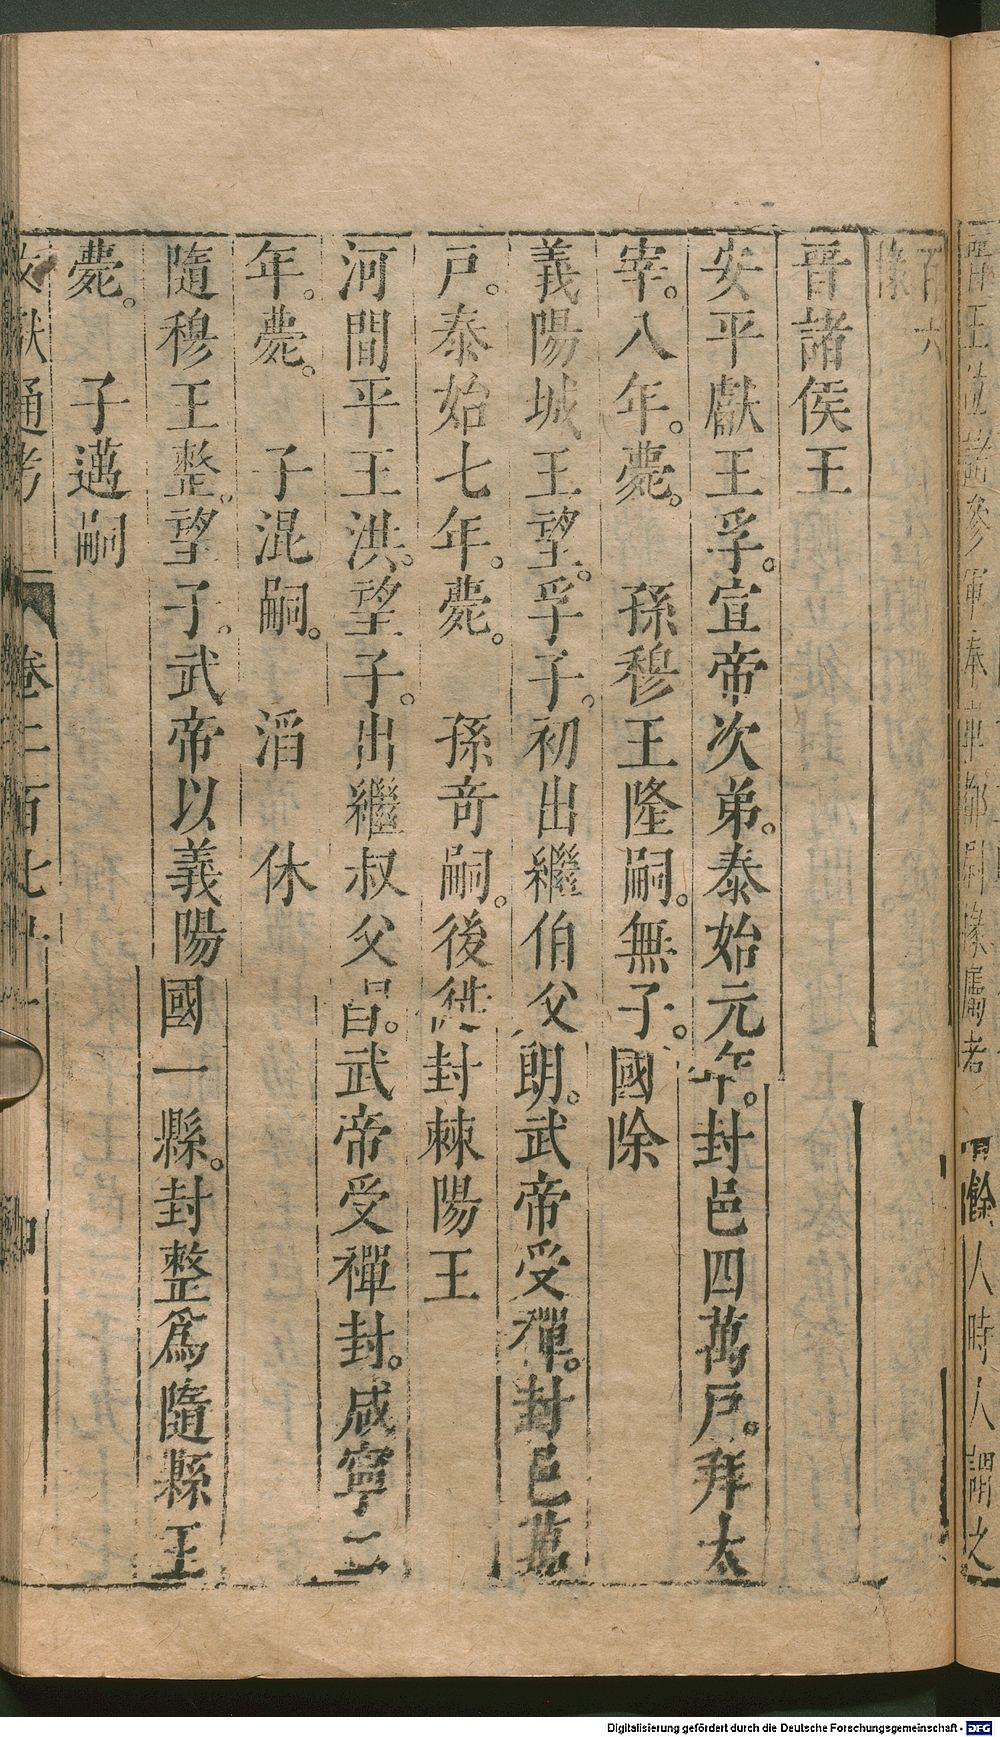 百六
掾
晉諸侯王
安平獻王孚。宣帝次弟。泰始元年。封邑四萬戶。拜太
宰。八年。薨。 孫穆王隆嗣。無子。國除
義陽城王望。孚子。初出繼伯父朗。武帝受禪。封邑萬
戶。泰始七年。薨。 孫奇嗣。後徙封棘陽王
河間平王洪。望子。出繼叔父昌。武帝受禪封。咸寧二
年。薨。 子混嗣。 滔 休
隨穆王整。望子。武帝以義陽國一縣。封整爲隨縣王
薨。 子邁嗣
文獻通考 卷二百七十一
餘人時人謂之
Digitalisierung gefördert durch die Deutsche Forschungsgemeinschaft - DFG